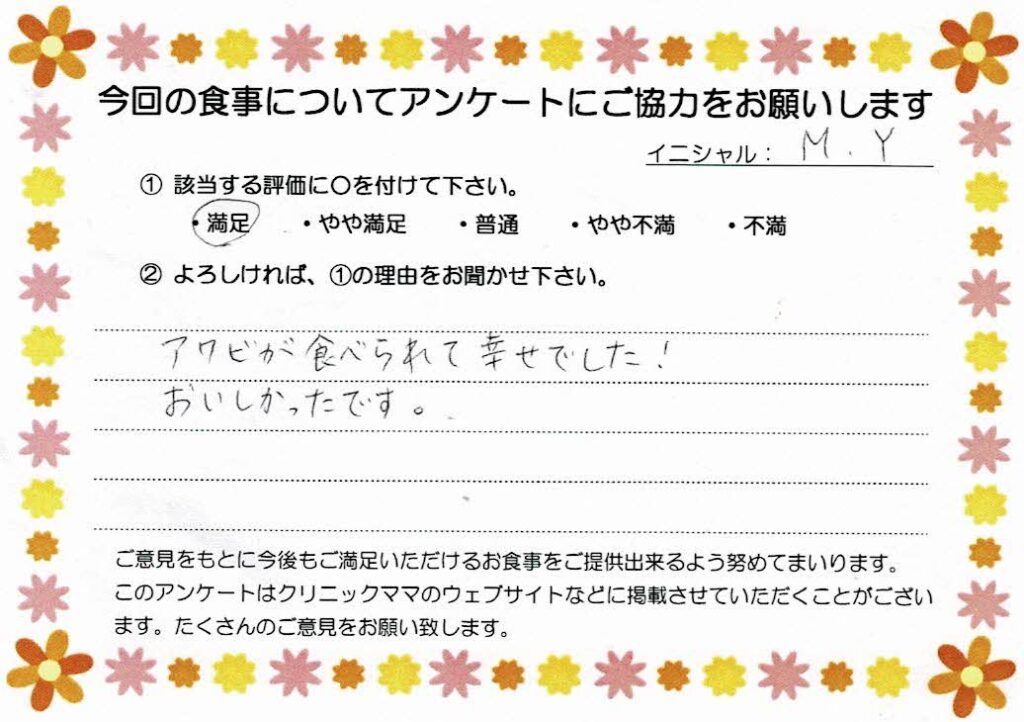 今回の食事についてアンケートにご協力をお願いします
イニシャル： M.Y
① 該当する評価に〇を付けて下さい。
・満足 ・やや満足 ・普通 ・やや不満 ・不満
② よろしければ、①の理由をお聞かせ下さい。
アワビが食べられて幸せでした！
おいしかったです。
ご意見をもとに今後もご満足いただけるお食事をご提供出来るよう努めてまいります。
このアンケートはクリニックママのウェブサイトなどに掲載させていただくことがござい
ます。たくさんのご意見をお願い致します。